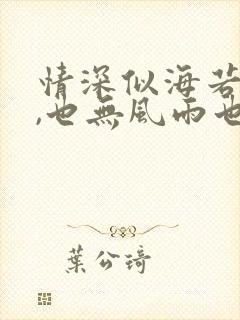 情深似海若
,也無風雨也
葉公琦